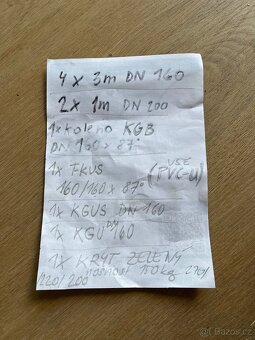 4 x 3m DN 160
2x 1m DN 200
1x koleno KGB
DN 160 x 87°
1x FKUS
160/160 x 87°
(VŠE PVC-U)
1x KGUS DN 160
1x KGU DN 160
1x KRYT ZELENÝ
nosnost 150kg
220/200
Bazos.cz